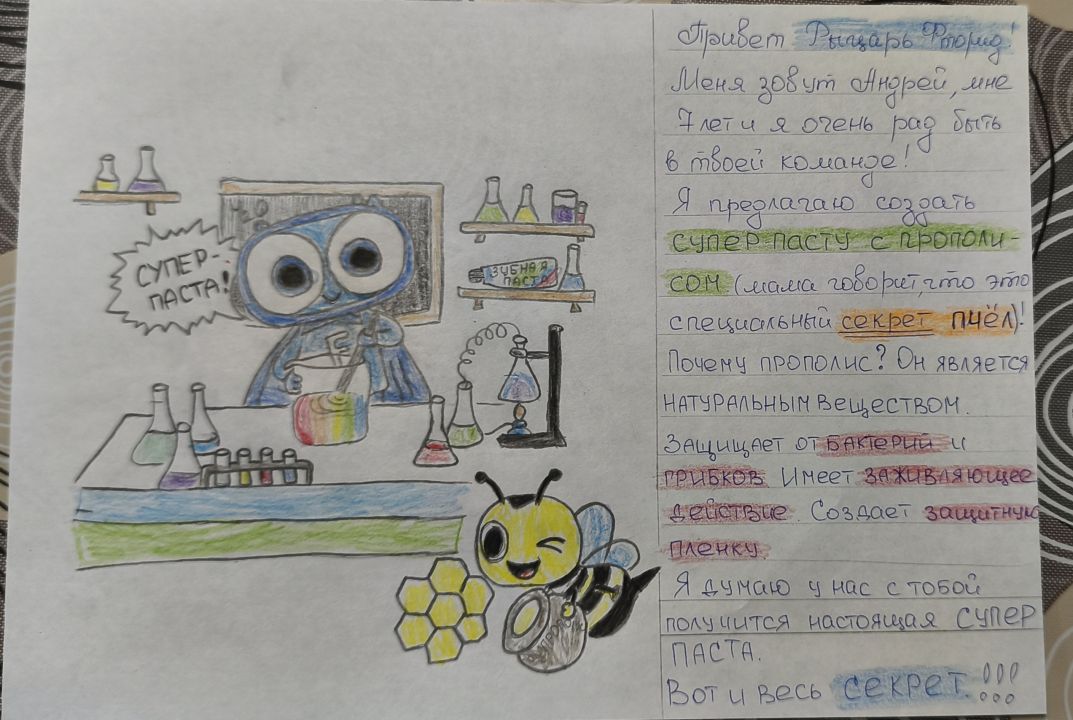 СУПЕР-
ПАСТА!
ЗУБНАЯ
ПАСТА
ПРОПОЛИС
Привет Рыцарь Фторид!
Меня зовут Андрей, мне
7 лет и я очень рад быть
в твоей команде!
Я предлагаю создать
СУПЕР ПАСТУ С ПРОПОЛИ-
СОМ (мама говорит, что это
специальный секрет ПЧЁЛ)!
Почему ПРОПОЛИС? Он является
НАТУРАЛЬНЫМ Веществом.
Защищает от БАКТЕРИЙ и
ГРИБКОВ. Имеет ЗАЖИВЛЯЮЩЕЕ
действие. Создает защитную
ПЛЕНКУ.
Я думаю у нас с тобой
получится настоящая СУПЕР
ПАСТА.
Вот и весь СЕКРЕТ.!!!